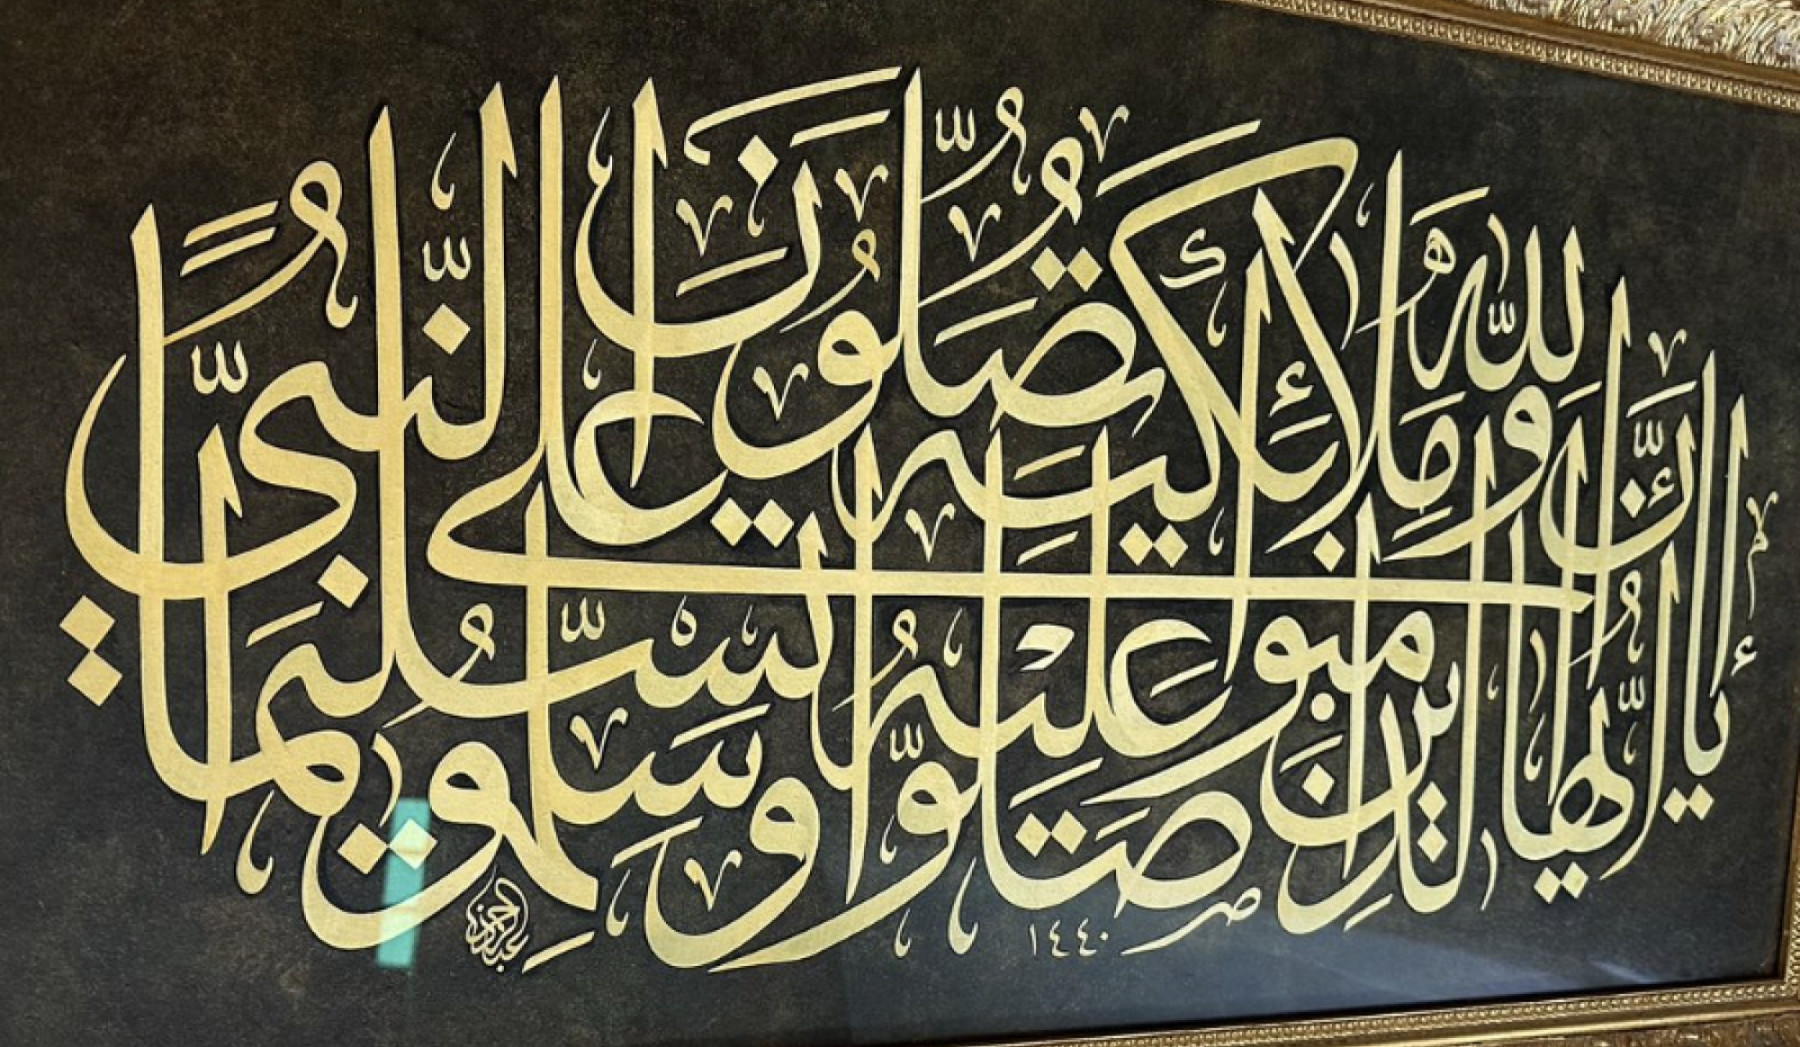 إِنَّ اللّٰهَ وَمَلَائِكَتَهُ يُصَلُّونَ عَلَى النَّبِيِّ
يَا أَيُّهَا الَّذِينَ آمَنُوا صَلُّوا عَلَيْهِ وَسَلِّمُوا تَسْلِيمًا
١٤٤٠